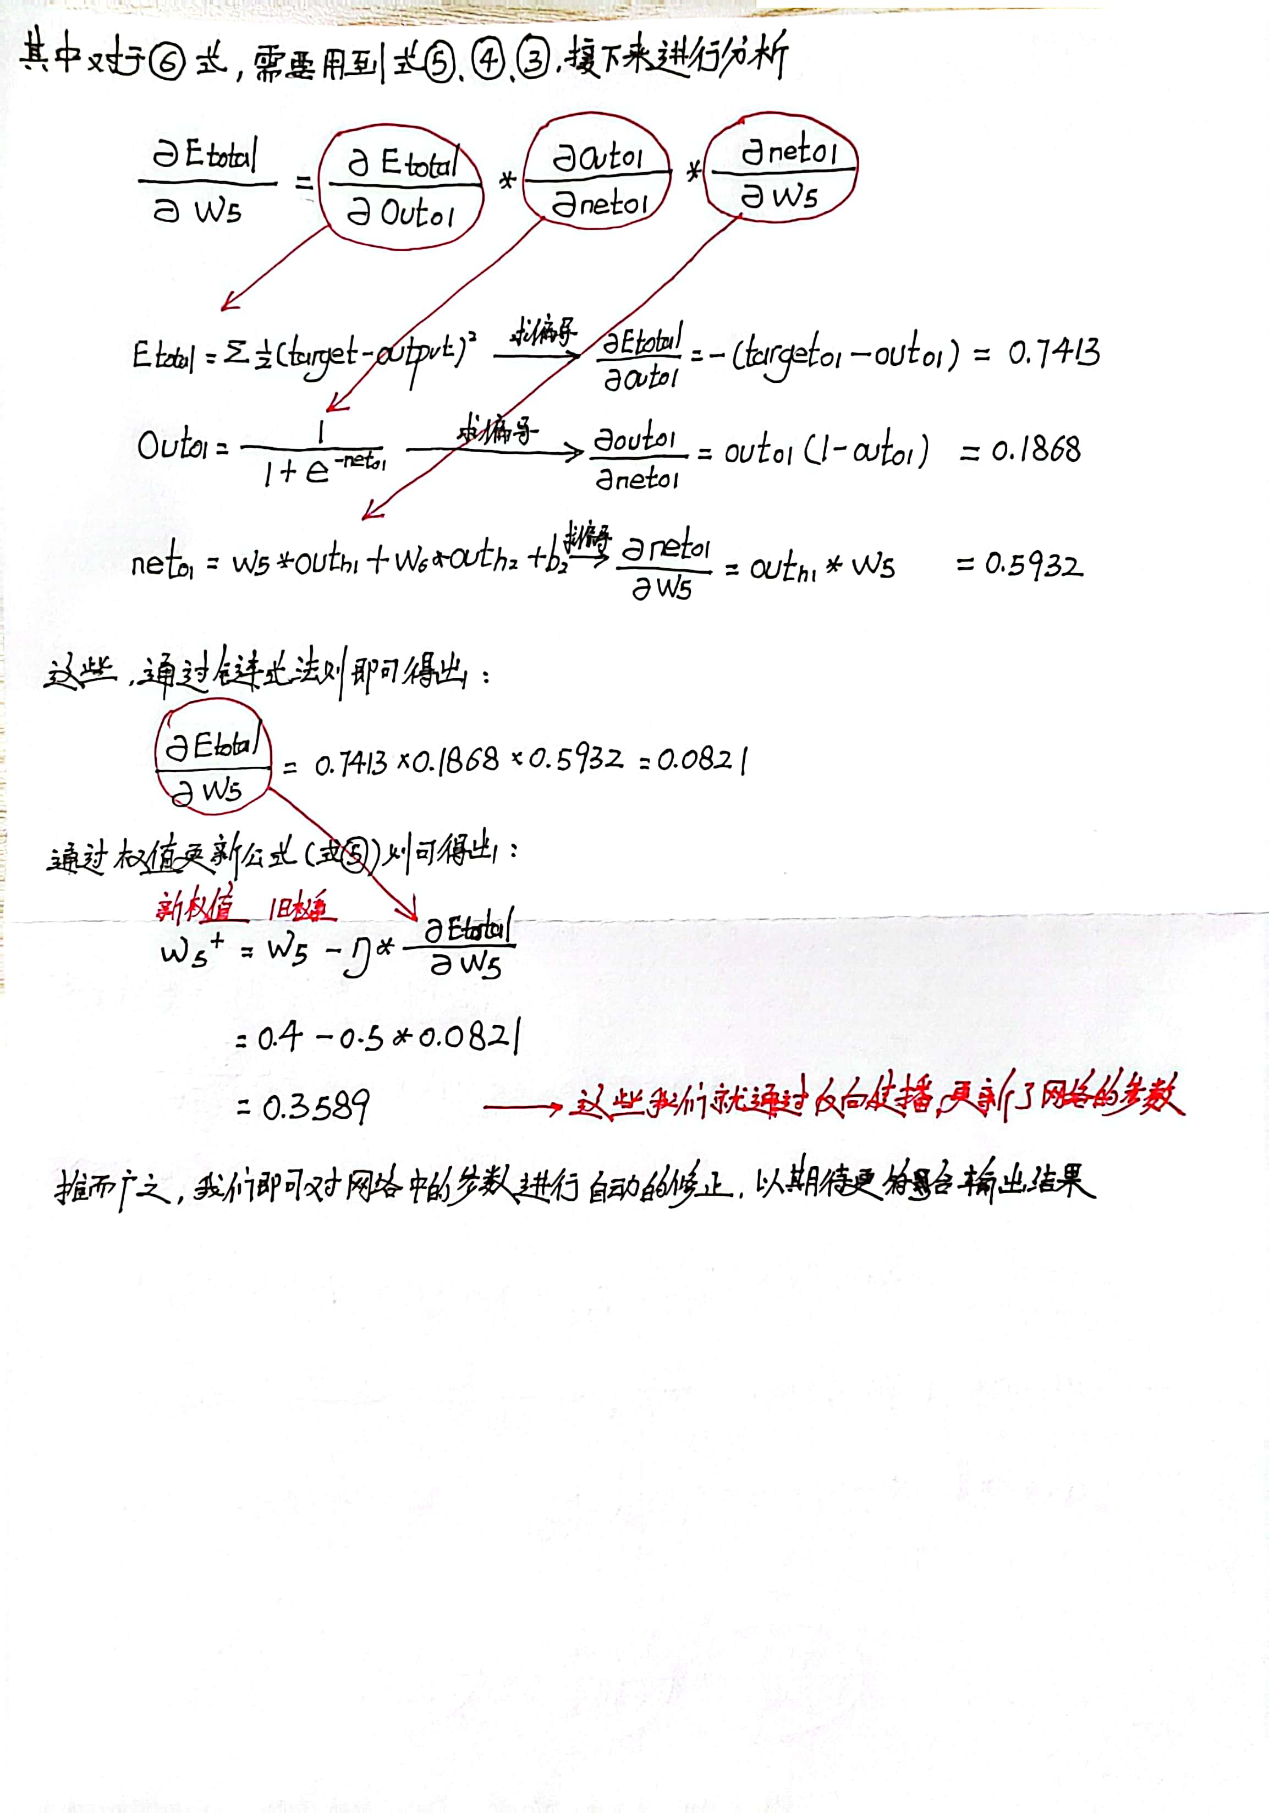 其中对于⑥式,需要用到式⑤、④、③,接下来进行分析
∂Etotal/∂W5 = ∂Etotal/∂Outo1 * ∂outo1/∂neto1 * ∂neto1/∂W5
Etotal = Σ½(target-output)² 求偏导→ ∂Etotal/∂outo1 = -(targeto1-outo1) = 0.7413
Outo1 = 1/(1+e^-neto1) 求偏导→ ∂outo1/∂neto1 = outo1(1-outo1) = 0.1868
neto1 = W5*outh1+W6*outh2+b2 求偏导→ ∂neto1/∂W5 = outh1*W5 = 0.5932
这些,通过链式法则即可得出:
∂Etotal/∂W5 = 0.7413×0.1868×0.5932=0.0821
通过权值更新公式(式⑤)则可得出:
新权值 旧权重
W5⁺ = W5-η*∂Etotal/∂W5
=0.4-0.5*0.0821
=0.3589 →这些我们就通过反向传播,更新了网络的参数
推而广之,我们即可对网络中的参数进行自动的修正,以期待更符合输出结果